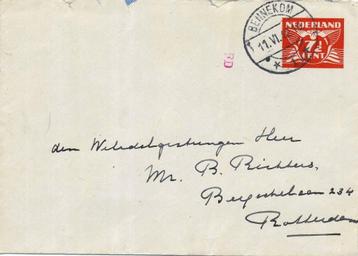 BENNEKOM
11.VI.
NEDERLAND
7½
CENT
RD
den Weledelgestrengen Heer
Mr. B. Richters,
Bergschelaan 234
Rotterdam